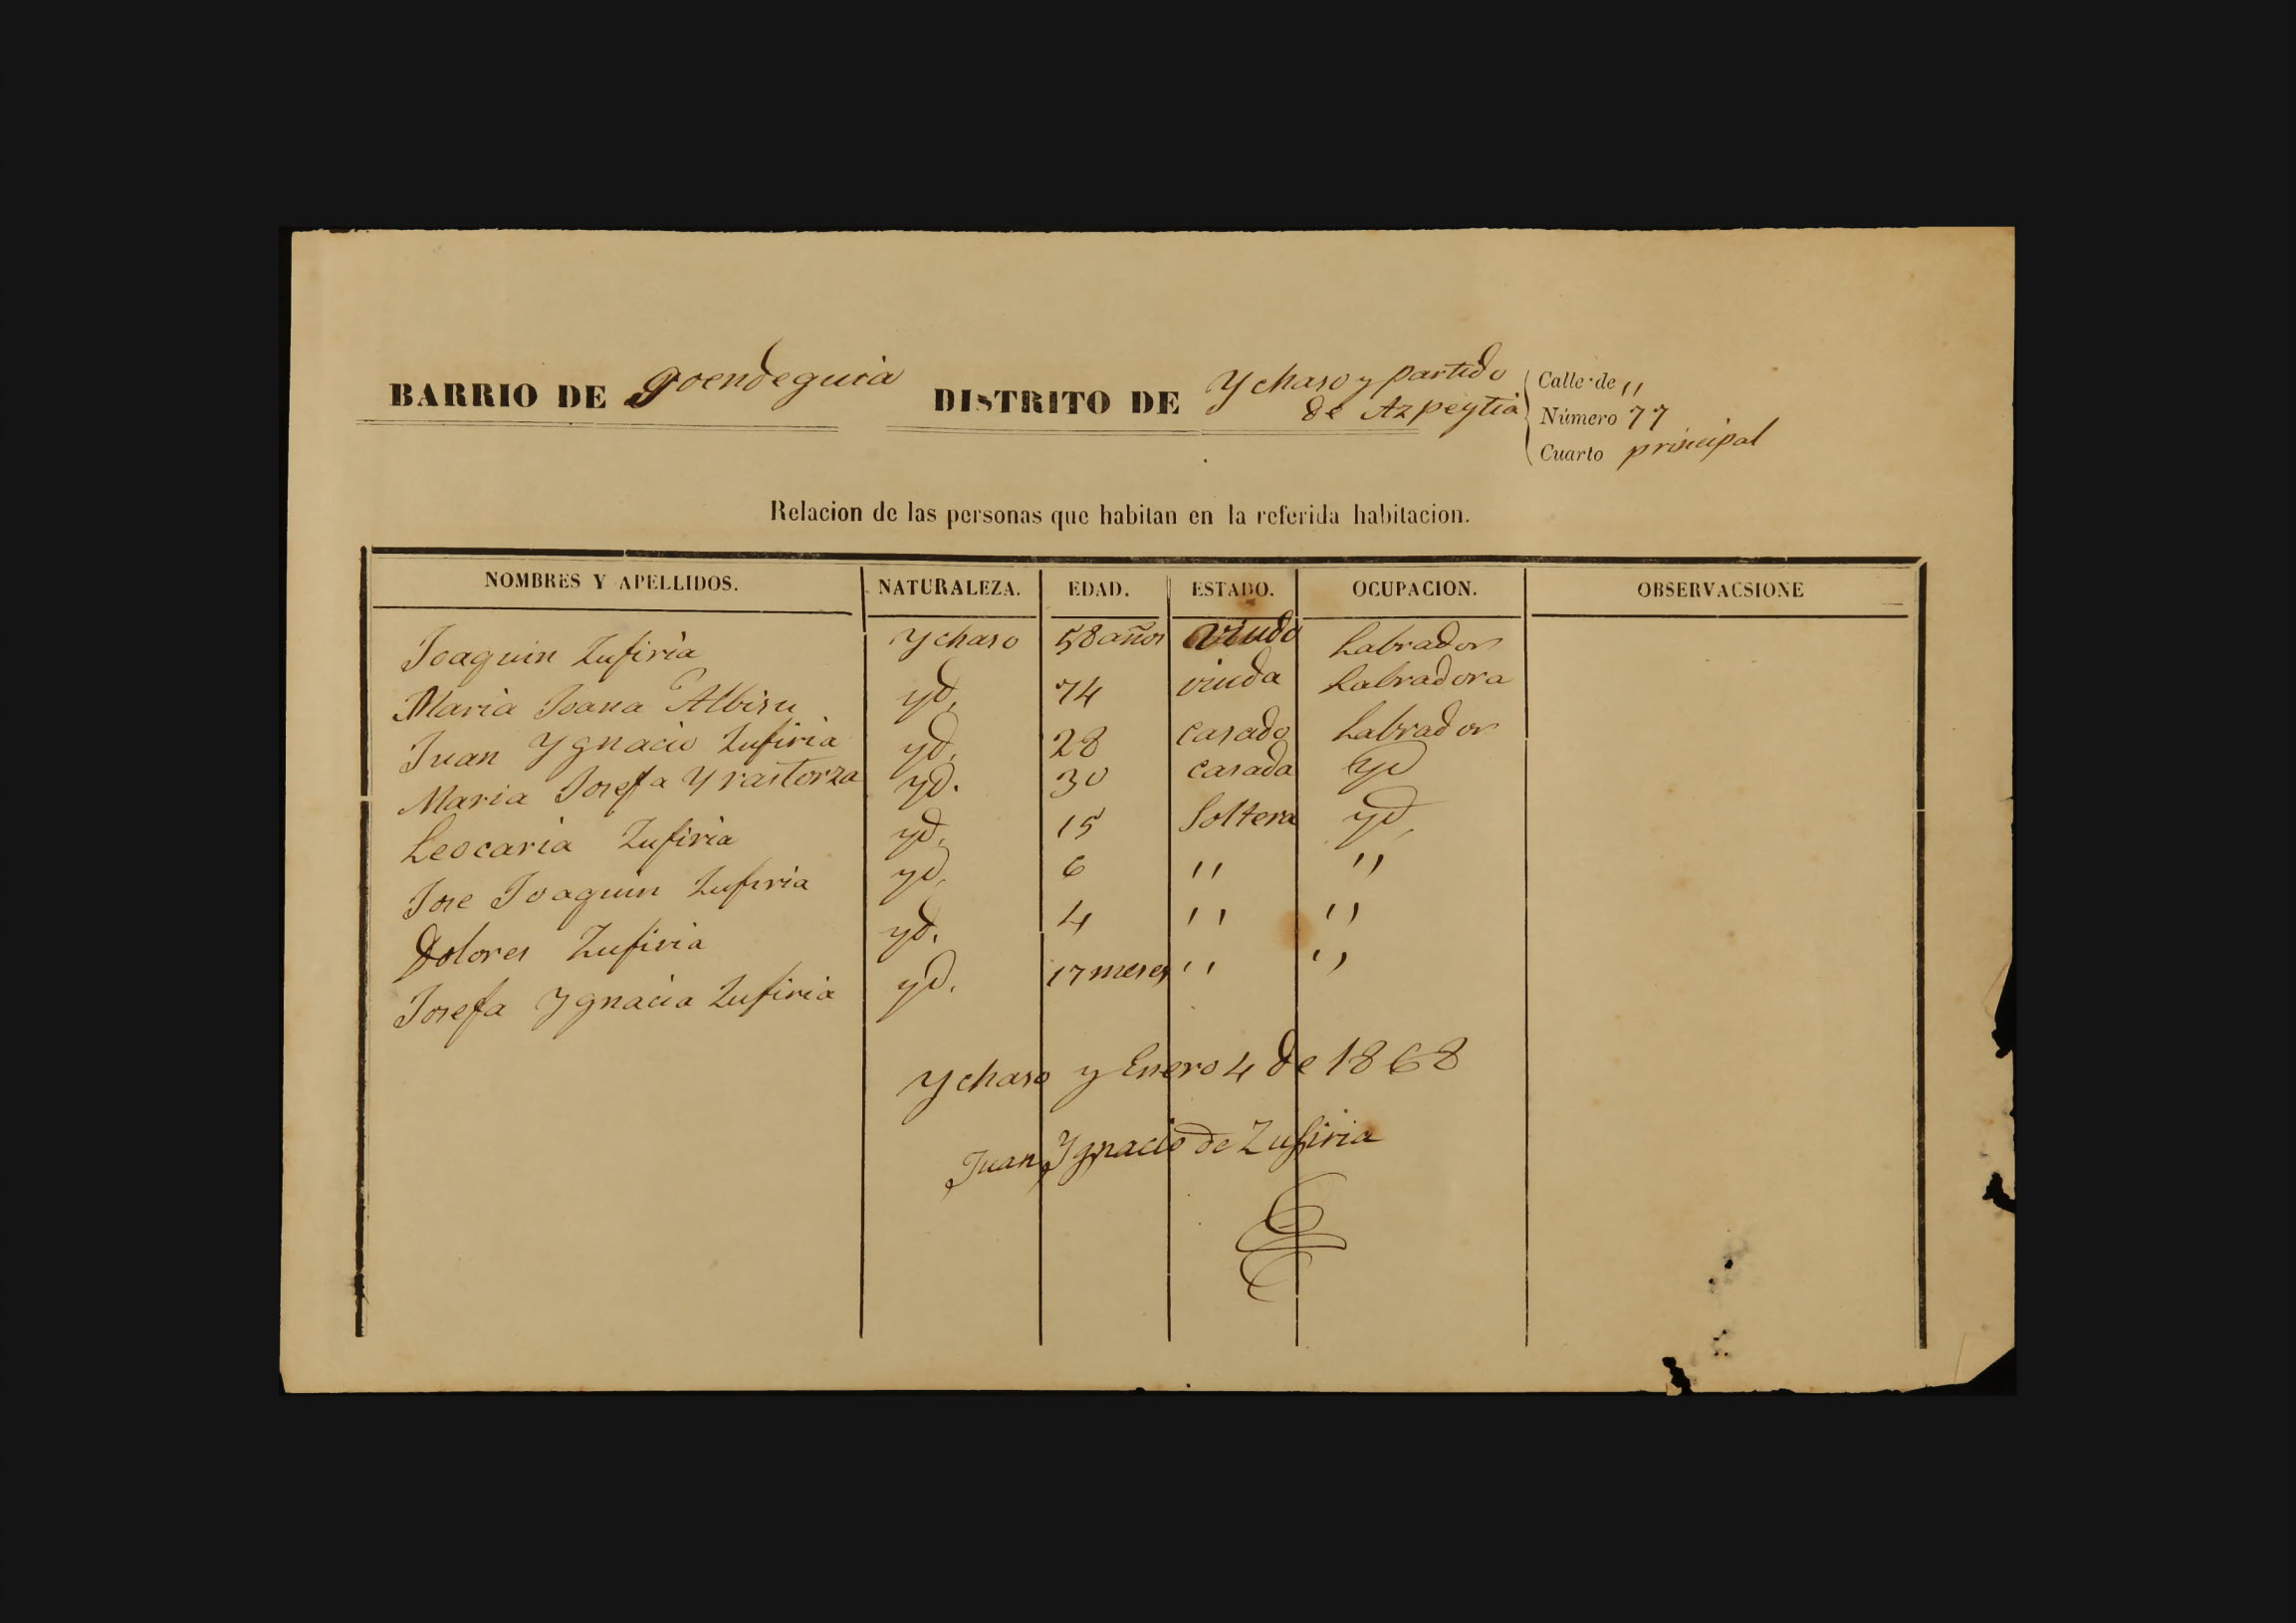 BARRIO DE goendeguia DISTRITO DE Ychaso y partido
de Azpeytia
Calle de "
Número 77
Cuarto principal
Relacion de las personas que habitan en la referida habitacion.
NOMBRES Y APELLIDOS. NATURALEZA. EDAD. ESTADO. OCUPACION. OBSERVACSIONE
Joaquin Zufiria Ychaso 58 años viudo Labrador
Maria Joana Albisu yd. 74 viuda Labradora
Juan Ygnacio Zufiria yd. 28 casado Labrador
Maria Josefa Yrastorza yd. 30 casada yd
Leocaria Zufiria yd. 15 Soltera yd.
Jose Joaquin Zufiria yd. 6 " "
Dolores Zufiria yd. 4 " "
Josefa Ygnacia Zufiria yd. 17 meses " "
Ychaso y Enero 4 de 1868
Juan Ygnacio de Zufiria